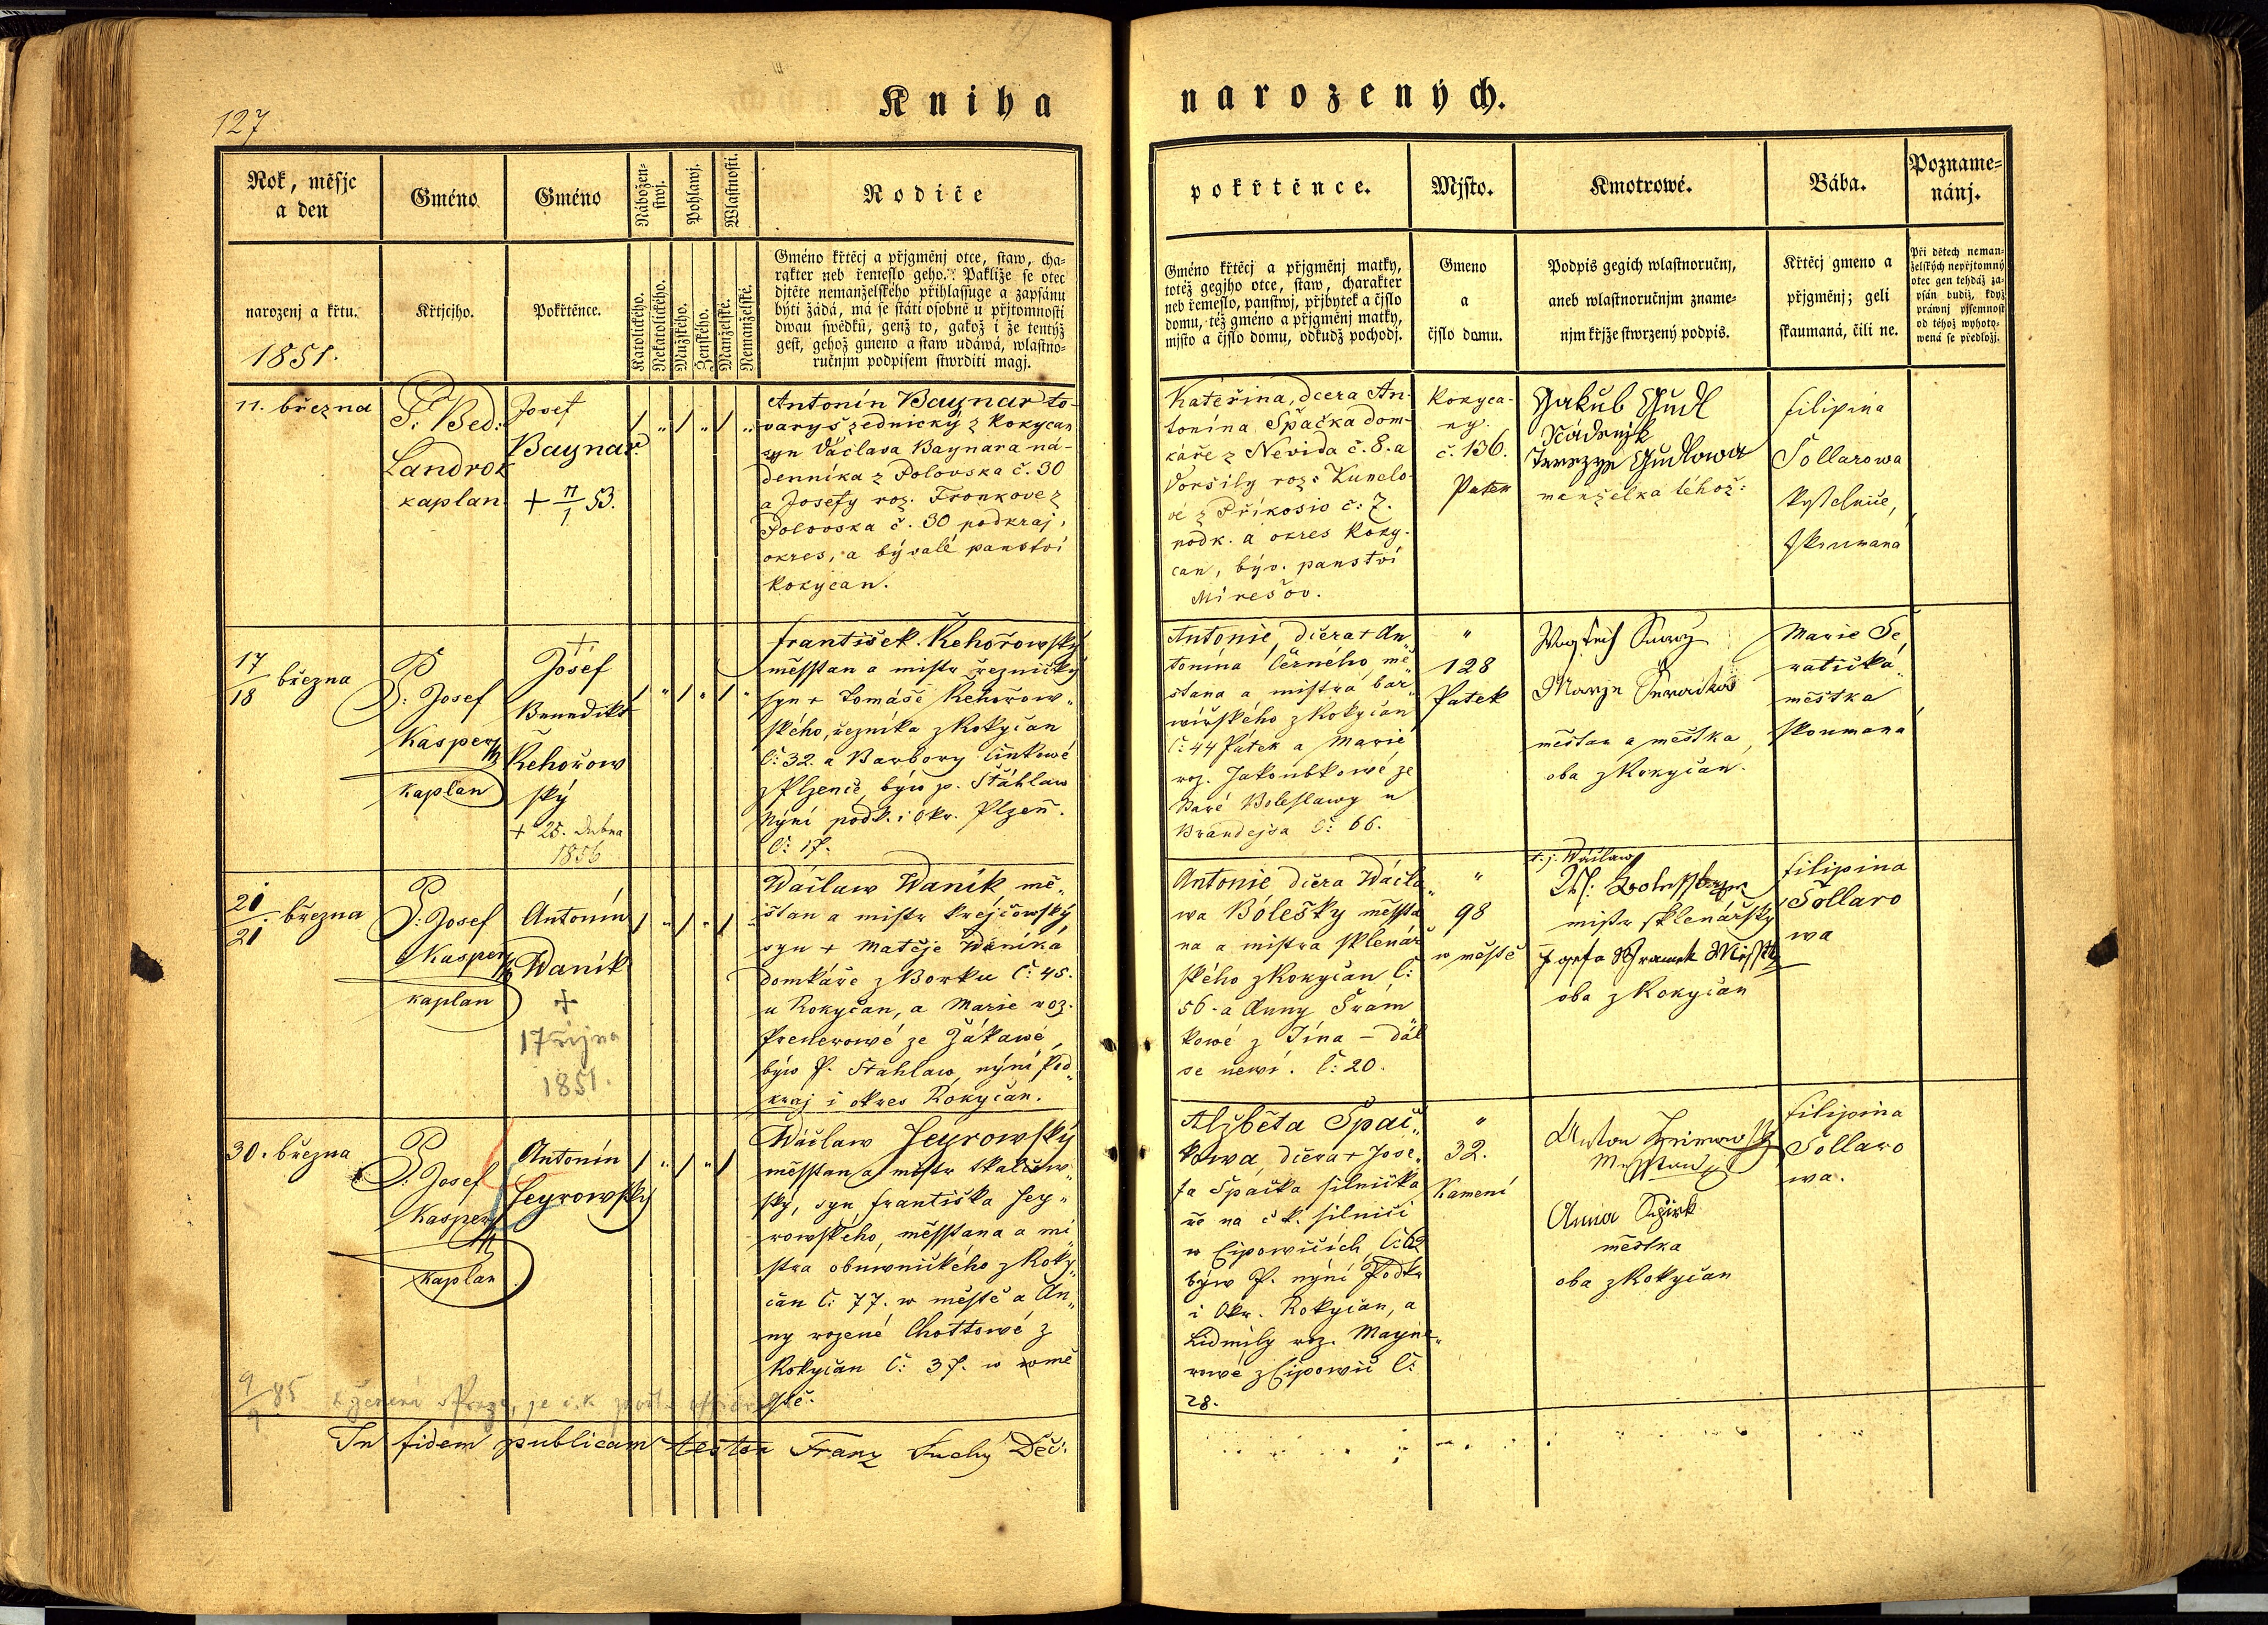 127
Kniha
narozených.
Rok, měsjc
a den
Gméno
Gméno
Nábožen-
stwj.
Pohlawj.
Wlastnosti.
Rodiče
narozenj a křtu.
1851.
Křtjcjho.
Pokřtěnce.
Katolického.
Nekatolického.
Mužského.
Ženského.
Manželské.
Nemanželské.
Gméno křtěcj a přjgměnj otce, staw, cha-
rakter neb řemeslo geho. Pakliže se otec
djtěte nemanželského přihlassuge a zapsánu
býti žádá, má se státi osobně u přjtomnosti
dwau swědků, genž to, gakož i že tentýž
gest, gehož gmeno a staw udáwá, wlastno-
ručnjm podpisem stwrditi magj.
pokřtěnce.
Mjsto.
Kmotrowé.
Bába.
Pozname-
nánj.
Gméno křtěcj a přjgměnj matky,
totéž gegjho otce, staw, charakter
neb řemeslo, panstwj, přjbytek a čjslo
domu, též gméno a přjgměnj matky,
mjsto a čjslo domu, odkudž pochodj.
Gmeno
a
čjslo domu.
Podpis gegich wlastnoručnj,
aneb wlastnoručnjm zname-
njm křjže stwrzený podpis.
Křtěcj gmeno a
přjgměnj; geli
skaumaná, čili ne.
Při dětech neman-
želských nepřjtomný
otec gen tehdáž za-
psán budiž, když
práwnj pjsemnost
od téhož wyhoto-
wená se předložj.
11. března
P. Bed:
Landrok
kaplan
Josef
Baynar
+ 11/1 53.
Antonín Baynar to-
varyš zednický z Rokycan
syn Václava Baynara ná-
denníka z Volovska č. 30
a Josefy roz. Fronkove z
Volovska č. 30 podkraj,
okres, a bývalé panství
Rokycan.
Kateřina, dcera An-
tonína Špačka dom-
káře z Nevida č. 8. a
Voršily roz: Kunelo-
vé z Příkosic č: 7.
podk. a okres Roky-
can, býv. panství
Mirešov.
Rokyca-
ny.
č. 136.
Patek
Jakub Gudl
Nádenjk
Terezye Gudlowa
manželka téhož:
Filipina
Sollarowa
kostelnice,
zkoumana
17/18 března
P: Josef
Kasper
kaplan
+
Josef
Benedikt
Řehořow
ský
+ 25. Dubna
1856
František Řehořowský
měsstan a mistr řeznický
syn + Tomáše Řehořow„
ského, řezníka z Rokycan
č: 32. a Barbory Cinkowé
z Plzence, býv. p. Šťáhlaw
nýní podk. i okr. Plzeň.
č: 17.
Antonie, dcera + An„
tonína Černého, mě„
stana a mistra bar„
wířského z Rokycan
č: 44 Pátek a Marie
roz. Jakoubkowé ze
staré Boleslawy u
Brandejsa č: 66.
„
128
Patek
měštan a měštka,
oba z Rokycan.
Marie Še„
ratička„
městka
skoumaná
20/21 března
P: Josef
Kasper
kaplan
Antonín
Waník
+
17 října
1851.
Wáclaw Waník mě„
štan a mistr krejčowský
syn + Matěje Waníka
domkáře z Borku č: 45.
u Rokycan, a Marie roz.
Prenerowé ze Žákawé,
býw P. Stahlaw, nýní Pod„
kraj i okres Rokycan.
Antonie dcera Wácla„
wa Bólešky měsst„
na a mistra sklenář
ského z Rokycan č:
56. a Anny Šrám„
kowé z Jína — dál
se newí. č: 20.
„
98
w městě
t. j. Wáclaw
mistr sklenářský
Jozefa Ssramek
oba z Rokycan
Filipina
Sollaro
wa
30. března
P: Josef
Kasper
kaplan
Antonín
Jeyrowský
Wáclaw Jeyrowský
měsstan a mistr tkalcow„
ský, syn, Františka Jey„
rowského, měsstana a mi„
stra obuwnického z Roky„
can č: 77. w městě a An„
ny rozené Chottowé z
Rokycan č: 37. w mě
stě.
Alžběta Špač„
kowa, dcera + Jose„
fa Špačka silničká
ře na c. k. silnici
w Ejpowicích, č: 62
býw P. nýní Podkr
i Okr. Rokycan, a
Lidmily roz. Mayne„
rowé z Ejpowic č:
28.
„
32.
Kamení
Anton
Měsstan
Anna
městka
oba z Rokycan
Filipina
Sollaro
wa.
9/9 85
In fidem publicam testor Franz Suchy Děč: